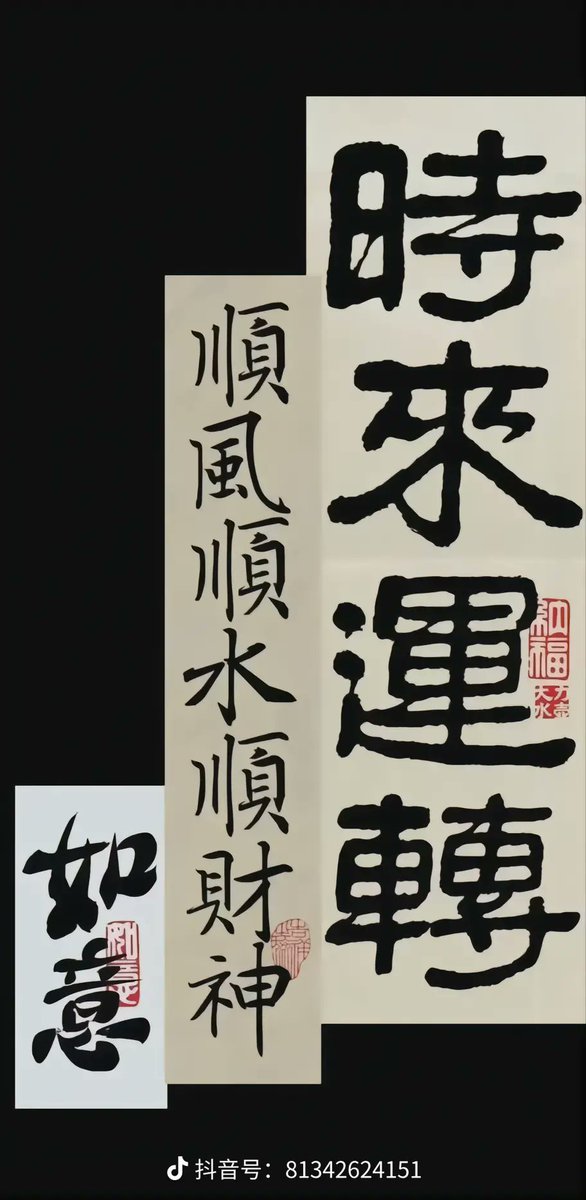 時來運轉
納福
順風順水順財神
如意
如意
抖音号：81342624151